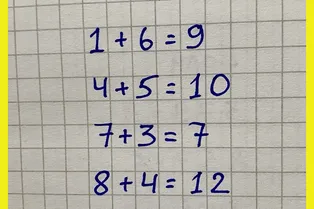 1 + 6 = 9
4 + 5 = 10
7 + 3 = 7
8 + 4 = 12